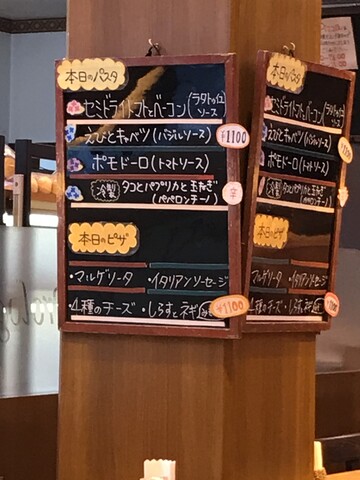 本日のパスタ
セミドライトマトとベーコン(ラタトゥイユソース)
えびとキャベツ(バジルソース)
¥1100
ポモドーロ(トマトソース)
冷製 タコとパプリカと玉ねぎ
(ペペロンチーノ)
辛
本日のピザ
・マルゲリータ
・イタリアンソーセージ
・4種のチーズ
・しらすとネギ
¥1100
本日のパスタ
セミドライトマトとベーコン
ソース
えびとキャベツ(バジルソース)
ポモドーロ(トマトソース)
冷製 タコとパプリカと玉ねぎ
(ペペロンチーノ)
本日のピザ
マルゲリータ
・イタリアンソーセージ
4種のチーズ
・しらすとネギ